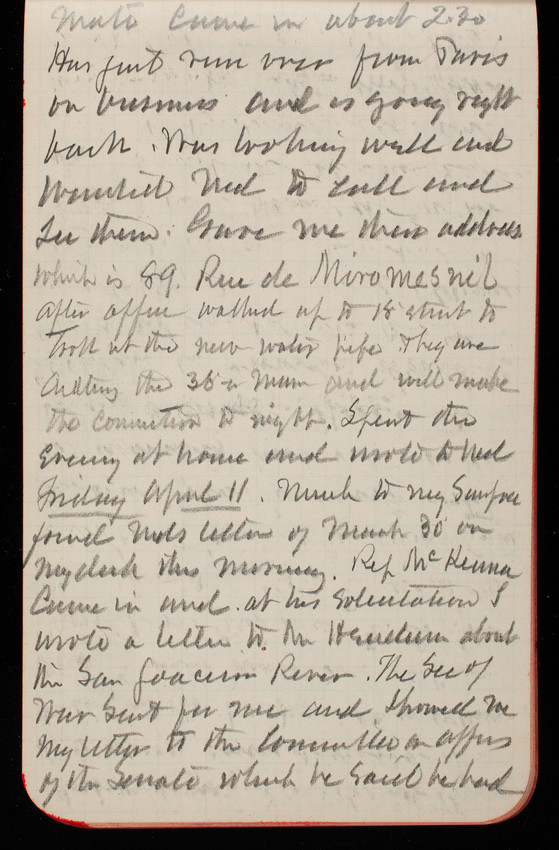 came in about 2.30
Has just run over from Paris
on business and is going right
back. Was looking well and
wanted Ned to call and
see them. Gave me their address
which is 89. Rue de Miromesnil
After office walked up to 18 street to
look at the new water pipe They are
cutting the 36 in main and will make
the connection to night. Spent the
Evening at home and wrote to Ned
Friday April 11. Much to my Surprise
found Neds letter of March 30 on
my desk this morning. Rep McKenna
Came in and at his solicitation I
wrote a letter to Mr about
the San Joaquin River. The Sec of
War Sent for me and showed me
my letter to the Committee on
of the Senate which he said he had